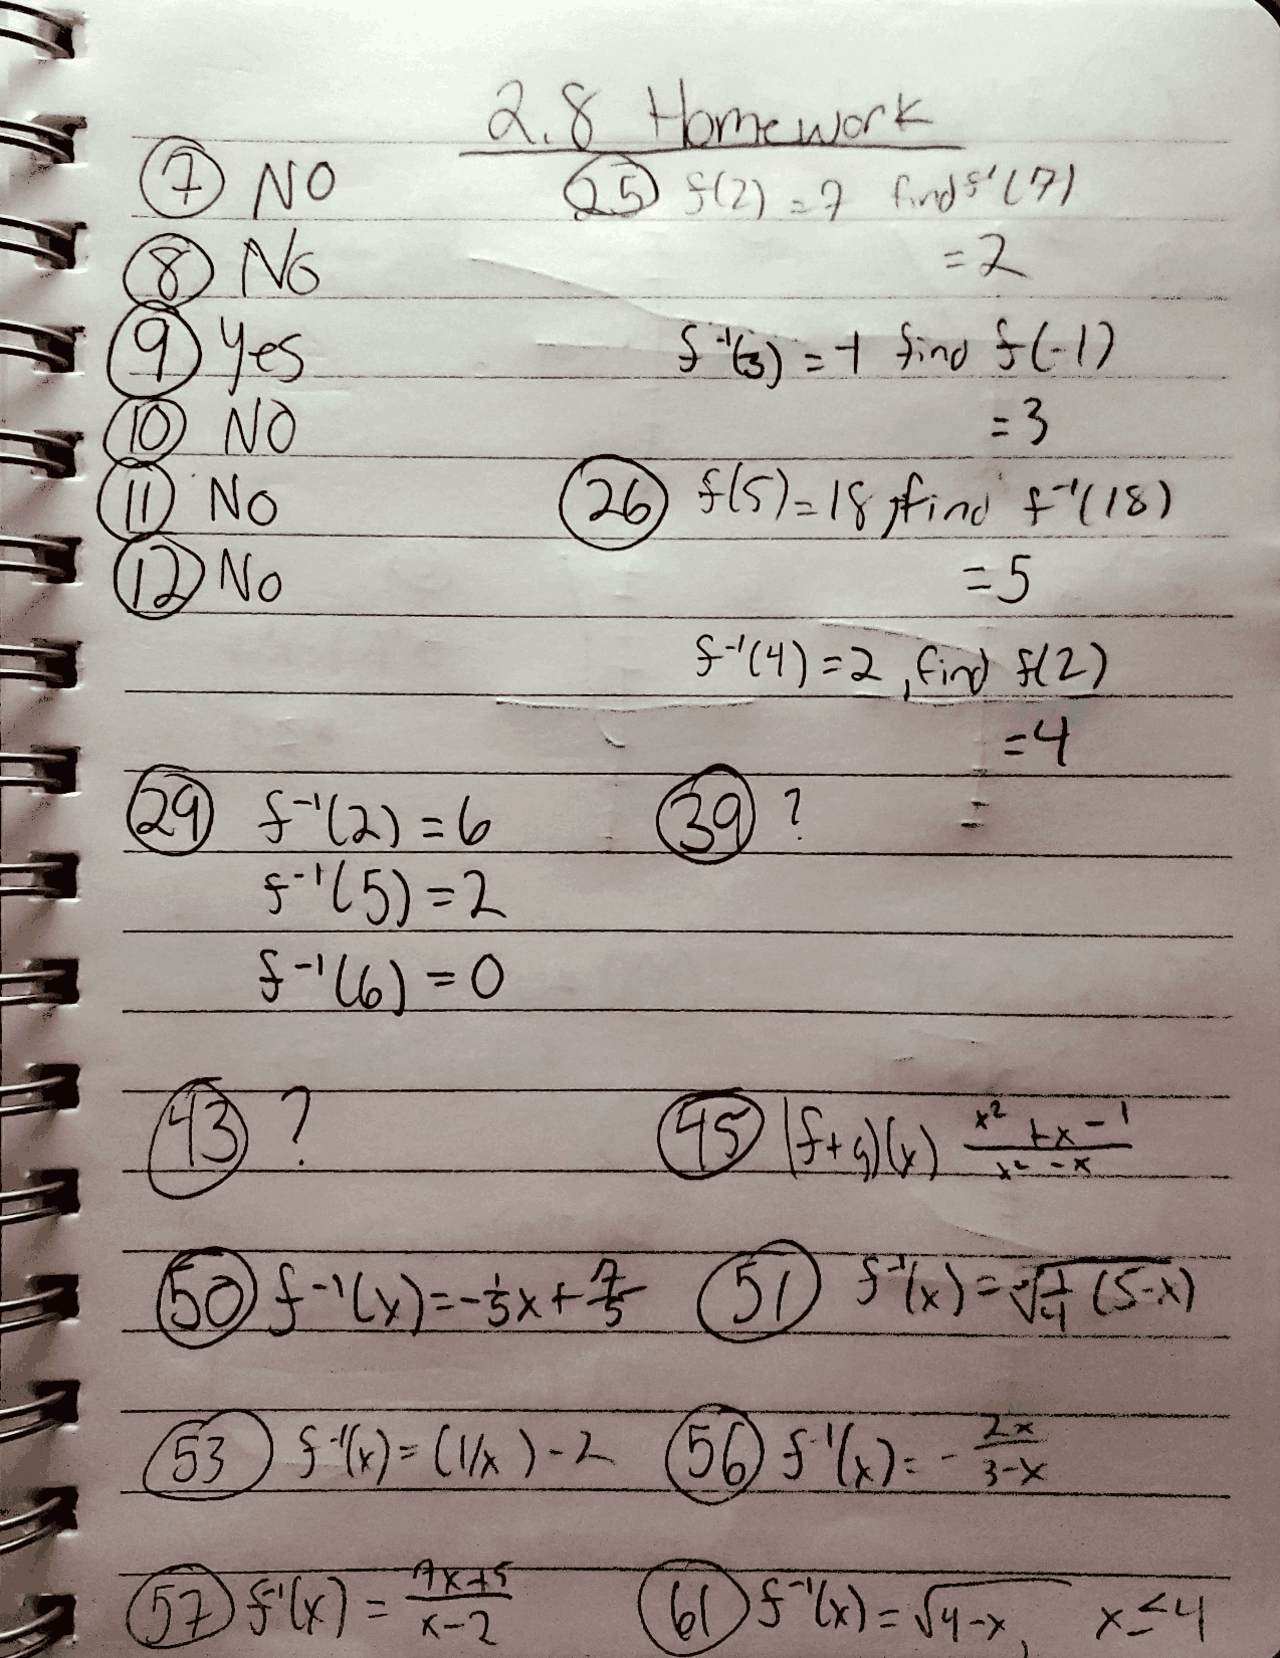 2.8 Homework
7 NO
8 No
9 Yes
10 NO
11 No
12 No
25 f(2) = 7 find f'(7)
= 2
f⁻¹(3) = -1 find f(-1)
= 3
26 f(5) = 18, find f⁻¹(18)
= 5
f⁻¹(4) = 2, find f(2)
= 4
29 f⁻¹(2) = 6
f⁻¹(5) = 2
f⁻¹(6) = 0
39 ? =
43 ?
45 (f+g)(x) (x² + x - 1)/(x² - x)
50 f⁻¹(x) = -1/5x + 7/5
51 f⁻¹(x) = √1/4 (5-x)
53 f⁻¹(x) = (1/x) - 2
56 f⁻¹(x) = - 2x/(3-x)
57 f⁻¹(x) = (7x+5)/(x-2)
61 f⁻¹(x) = √4-x, x ≤ 4